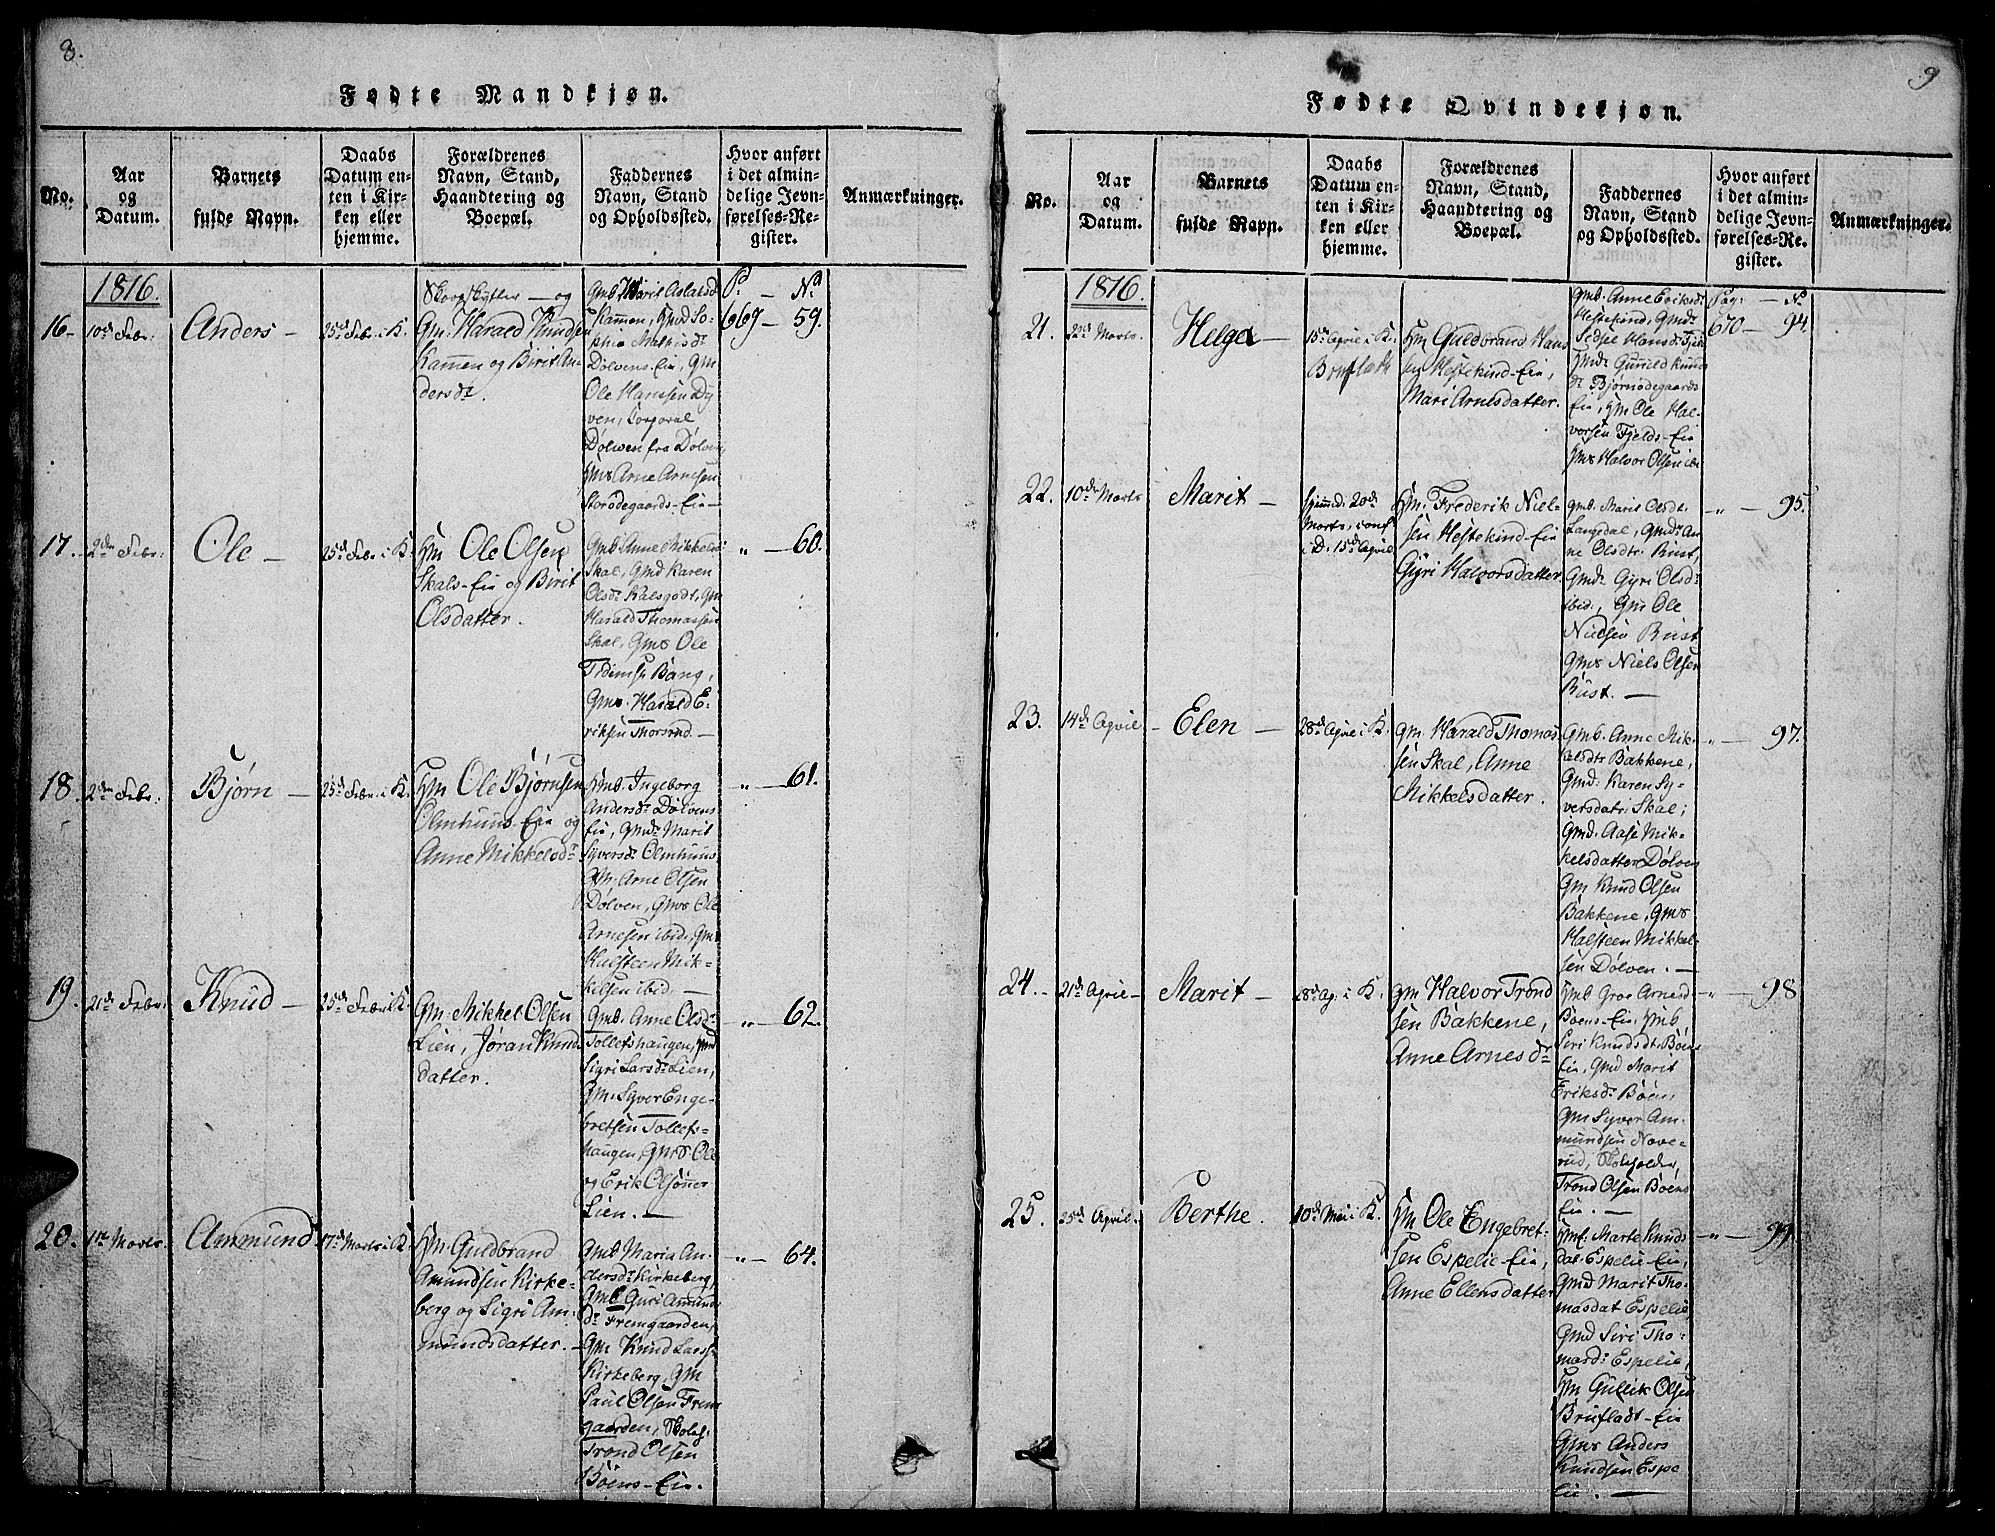 8.
Fødte Mandkjøn.
No.
Aar
og
Datum.
Barnets
fulde Navn.
Daabs
Datum en-
ten i Kir-
ken eller
hjemme.
Forældrenes
Navn, Stand,
Haandtering og
Boepæl.
Faddernes
Navn, Stand
og Opholdssted.
Hvor anført
i det almin-
delige Jevn-
førelses-Re-
gister.
Anmærkninger.
1816.
16-
10d Febr:
Anders-
25d Febr: i K.
Skovskytter - og
Gm. Harald Knuds
Kamen og Birit An-
dersdr.
Gmb. Marit Aslaksd
Kammen, Gmd So-
phia Mathisdr
Dølvens-Eie, Gm
Ole Hanssen Dy
ven, Corporal
Dølven fra Dølven,
Hms Arne Arnesen
Storødegaards-Eie-
P. - No
669- 59.
17.
2den Febr:
Ole -
25d Febr: i K.
Hm Ole Olsen
Skals-Eie og Birit
Olsdatter.
Gmb. Anne Mikkelsd:
Skal, Gmd Karen
Olsdr Kalsgodt, Gm
Harald Thomassen
Skal, Gms Ole
Bang,
Gms. Harald E-
riksen Thorsrud.-
" - 60.
18.
2den Febr:
Bjørn -
25d Febr. i K.
Hm Ole Bjørnsen
Olmhuus-Eie og
Anne Mikkelsdr
Hmb. Ingeborg
Andersdr Dølvens
Eie, Gmd. Marit
Syversdr Olmhuus
Gm. Arne Olsen
Dølven, Gms Ole
Arnesen ibid., Gms
Halsteen Mik-
kelsen ibid. -
" - 61.
19.
21d Febr:
Knud -
25d Febr i K
Gm. Mikkel Olsen
Lien, Jøran Knuds
datter.
Gmb. Anne Olsdr
Tollefshaugen, Gmd
Sigri Larsdr Lien,
Gm. Syver Enge-
bretsen Tollefs-
haugen, Gms Ole
og Erik Olsønner
Lien. -
" - 62.
20.
1te Marts.
Ammund
17d Marts i K
Hm. Guldbrand
Amundsen Kirke-
berg og Sigri Am-
mundsdatter. -
Gmb Maria An-
dersdr Kirkeberg,
Gmb Guri Amunds
dr Fremgaarden,
Gm Knud Larss
Kirkeberg, Gm
Paul Olsen Frem
gaarden, Skoleh.
Trond Olsen
Bøens-Eie.
" - 64.
9
Fødte Qvindekjøn.
No.
Aar
og
Datum.
Barnets
fulde Navn.
Daabs
Datum en-
ten i Kir-
ken eller
hjemme.
Forældrenes
Navn, Stand,
Haandtering og
Boepæl.
Faddernes
Navn, Stand
og Opholdssted.
Hvor anført
i det almin-
delige Jevn-
førelses-Re-
gister.
Anmærkninger.
1816.
21.
22d Marts.
Helga -
15d April i K.
Bruflath
Hm Guldbrand Hans
sen Hestekind-Eie,
Mari Arnesdatter.
Gmb. Anne Eriksdr
Hestekind, Gmdr
Sidsel Hansdr
Hmdr Gunild Knuds
dr Bjørnødegaards
Eie, Hm Ole Hal-
vorsen Fjelds-Eie
Hms Halvor Olsen
Pag: - No
670- 94.
22.
10de Marts
Marit -
hjemmed. 20d
Marts, conf.
i D. 15d April
Hm. Frederik Niel-
sen Hestekind-Eie
Gyri Halvorsdatter
Gmb. Marit Olsdr.
Langedal, Gmdr An
ne Olsdtr. Bust,
Gmdr Gyri Olsdr
ibid., Gm Ole
Nielsen Bust
Gms Niels Olsen
Bust. -
" - 95.
23.
14d April
- Elen -
28d April i K.
Gm. Harald Thomas
sen Skal, Anne
Mikkelsdatter.
Gmb. Anne Mik-
kelsdtr Bakkene,
Gmd. Karen Sy-
versdatr. Skal;
Gmd. Aase Mik-
kelsdatter Dølven
Gm Knud Olsen
Bakkene, Gms
Halsteen Mikkel-
sen Dølven. -
" - 97.
24.
21d April -
Marit -
28d Ap. i K.
Gm Halvor Trond
sen Bakkene,
Anne Arnesdr
Gmb Groe Arnesd
Bøens-Eie, Hmb
Siri Knudsdtr. Bøens
Eie, Gmd Marit
Eriksdr Bøen,
Gm Syver Am-
mundsen Nøve-
rud, Skoleholder,
Trond Olsen Bøens
Eie. -
" - 98
25.
25d April.
Berthe.
10d Mai i K.
Hm Ole Engebret-
sen Espelie-Eie,
Anne Ellensdatter
Hmf. Marte Knuds
dat Espelie-Eie,
Gmd Marit Tho-
masdat Espelie,
Gmd Siri Tho-
masdr Espelie,
Hm Gullik Olsen
Brufladt-Eie
Gms Anders
Knudsen Espe
lie. -
" - 99.